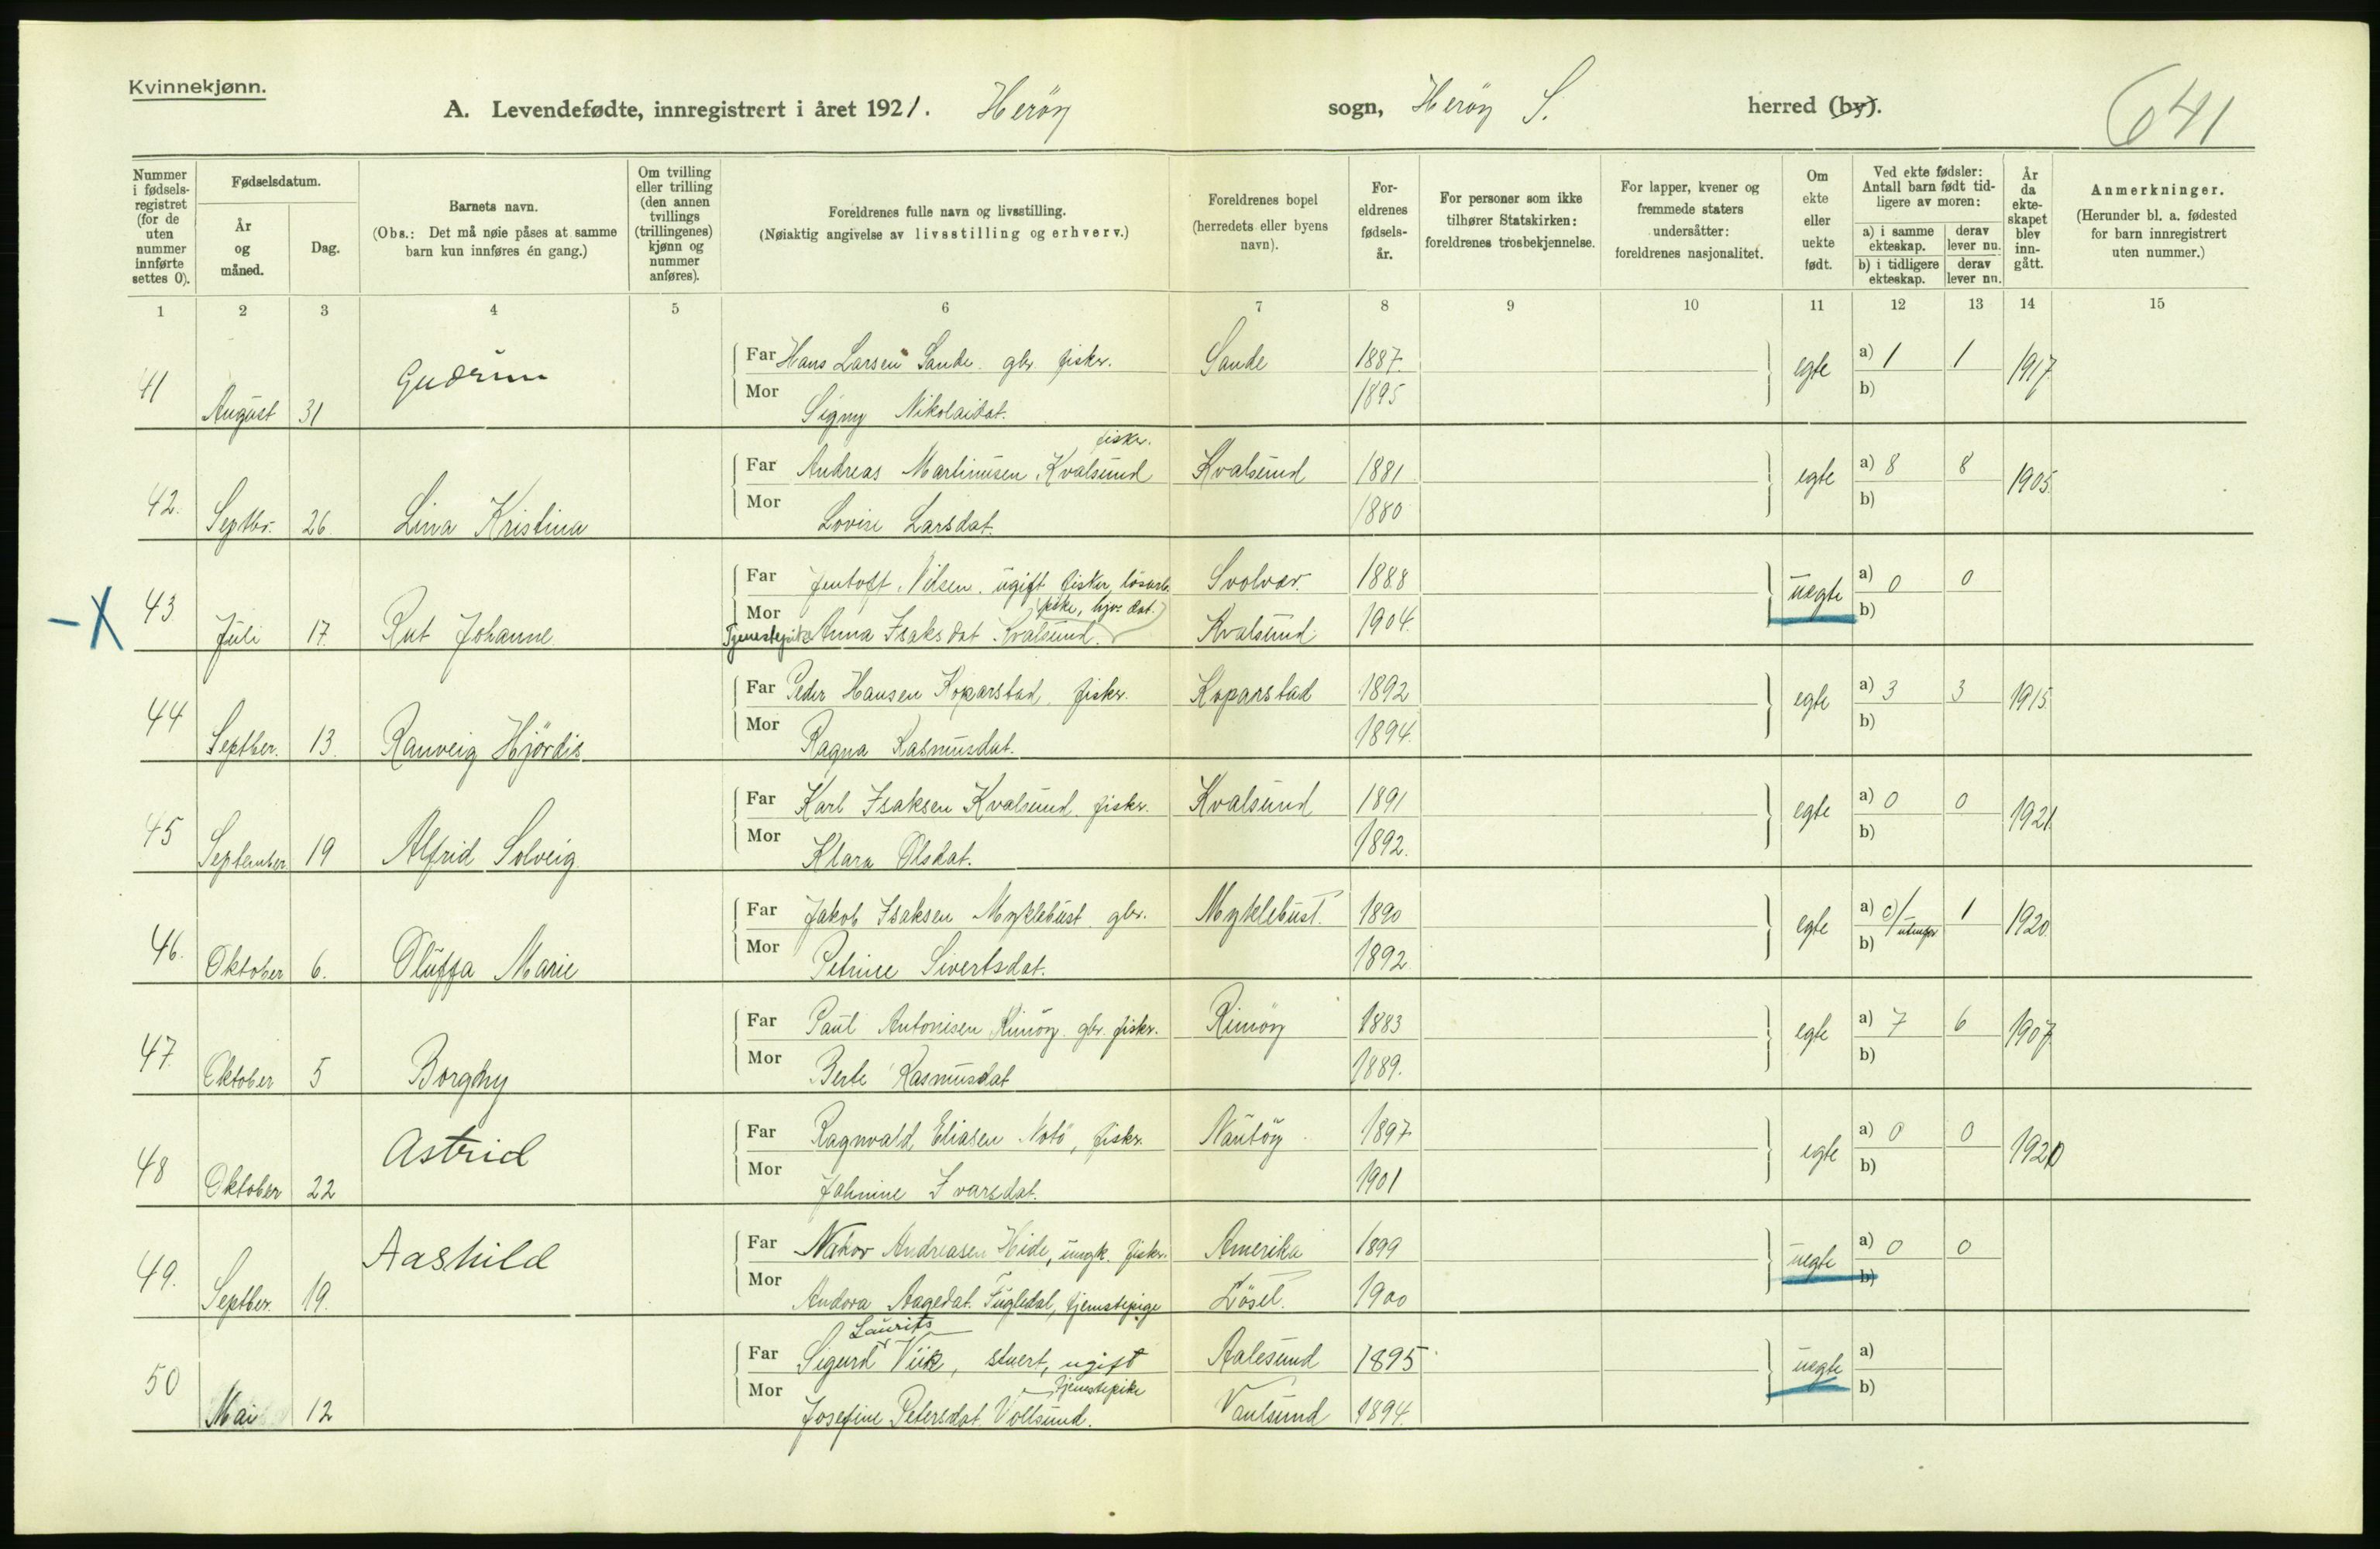 Kvinnekjønn.
A. Levendefødte, innregistrert i året 1921. Herøy sogn, Herøy S. herred (by).
641
Nummer i fødsels-registret (for de uten nummer innførte settes 0).
Fødselsdatum.
År og måned.
Dag.
Barnets navn.
(Obs.: Det må nøie påses at samme barn kun innføres én gang.)
Om tvilling eller trilling (den annen tvillings (trillingenes) kjønn og nummer anføres).
Foreldrenes fulle navn og livsstilling.
(Nøiaktig angivelse av livsstilling og erhverv.)
Foreldrenes bopel (herredets eller byens navn).
For-eldrenes fødsels-år.
For personer som ikke tilhører Statskirken: foreldrenes trosbekjennelse.
For lapper, kvener og fremmede staters undersåtter: foreldrenes nasjonalitet.
Om ekte eller uekte født.
Ved ekte fødsler: Antall barn født tid-ligere av moren:
a) i samme ekteskap. derav lever nu.
b) i tidligere ekteskap. derav lever nu.
År da ekte-skapet blev inn-gått.
Anmerkninger.
(Herunder bl. a. fødested for barn innregistrert uten nummer.)
1 2 3 4 5 6 7 8 9 10 11 12 13 14 15
41 August 31 Gudrun
Far Hans Larsen Sande. gbr fisker. Sande 1887. egte a) 1 1 1917
Mor Signy Nikolaidat. 1895 b)
42. Septbr. 26. Lina Kristina
fisker.
Far Andreas Martinusen Kvalsund Kvalsund 1881 egte a) 8 8 1905.
Mor Lovise Larsdat. 1880 b)
-X 43 Juli 17. Rut Johanne
Far Jentoft Nilsen. ugift fisker, løsarb. Svolvær. 1888 uegte a) 0 0
pike, hjv. dat.
Mor Tjenestepike Anna Isaksdat Kvalsund. Kvalsund 1904. b)
44 Septber. 13. Ranveig Hjördis
Far Peder Hansen Koparstad, fisker. Koparstad 1892 egte a) 3 3 1915.
Mor Ragna Rasmusdat. 1894. b)
45 September 19 Alfrid Solveig
Far Karl Isaksen Kvalsund fisker. Kvalsund 1891 egte a) 0 0 1921.
Mor Klara Olsdat. 1892. b)
46. Oktober 6. Oluffa Marie
Far Jakob Isaksen Myklebust gbr. Myklebust. 1890 egte a) 1 1920.
Mor Petrine Sivertsdat. 1892 b)
47. Oktober 5 Borghy
Far Paul Antonisen Rimöy gbr. fisker. Rimöy 1883 egte a) 7 6 1907
Mor Berte Rasmusdat 1889. b)
48 Oktober 22 Astrid
Far Ragnvald Eliasen Notö, fisker. Nautöy 1897 egte a) 0 0 1920
Mor Jahnine Ivarsdat. 1901 b)
49. Septber. 19. Aashild
Far Nakor Andreasen Hide, ungk. fisker. Amerika 1899 uegte a) 0 0
Mor Andora Aagedat. Fugledal, tjenstepige Lösel. 1900 b)
50 Mai 12
Laurits
Far Sigurd Viik, stuert, ugift Aalesund 1895 uegte a)
tjenstepike
Mor Josefine Petersdat. Vollsund. Vaulsund 1894. b)